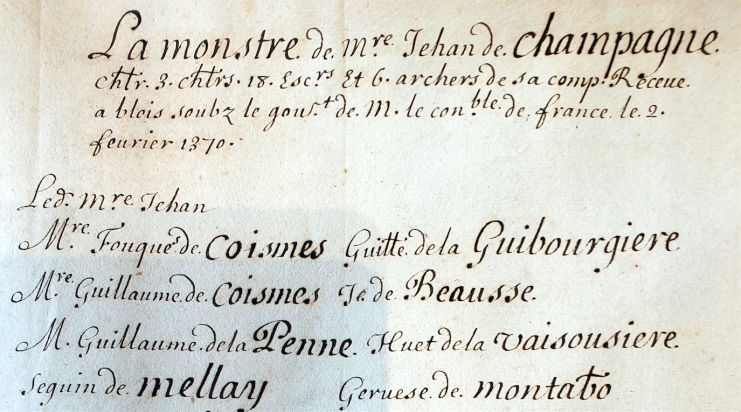 La monstre. de. mre. Jehan de. Champagne.
chtr. 3. chtrs. 18. Escrs Et 6. archers de sa comp. Receue.
a blois soubz le gous.t de. M. le conble. de. france. le. 2.
feurier 1370.
Led. mre. Jehan
Mre. Fouques de. Coismes Guille. dela Guibourgiere.
Mre. Guillaume. de. Coismes Je. de. Beausse.
M. Guillaume. dela Penne. Huet dela vaisousiere.
Seguin de. mellay Geruese. de. montabo